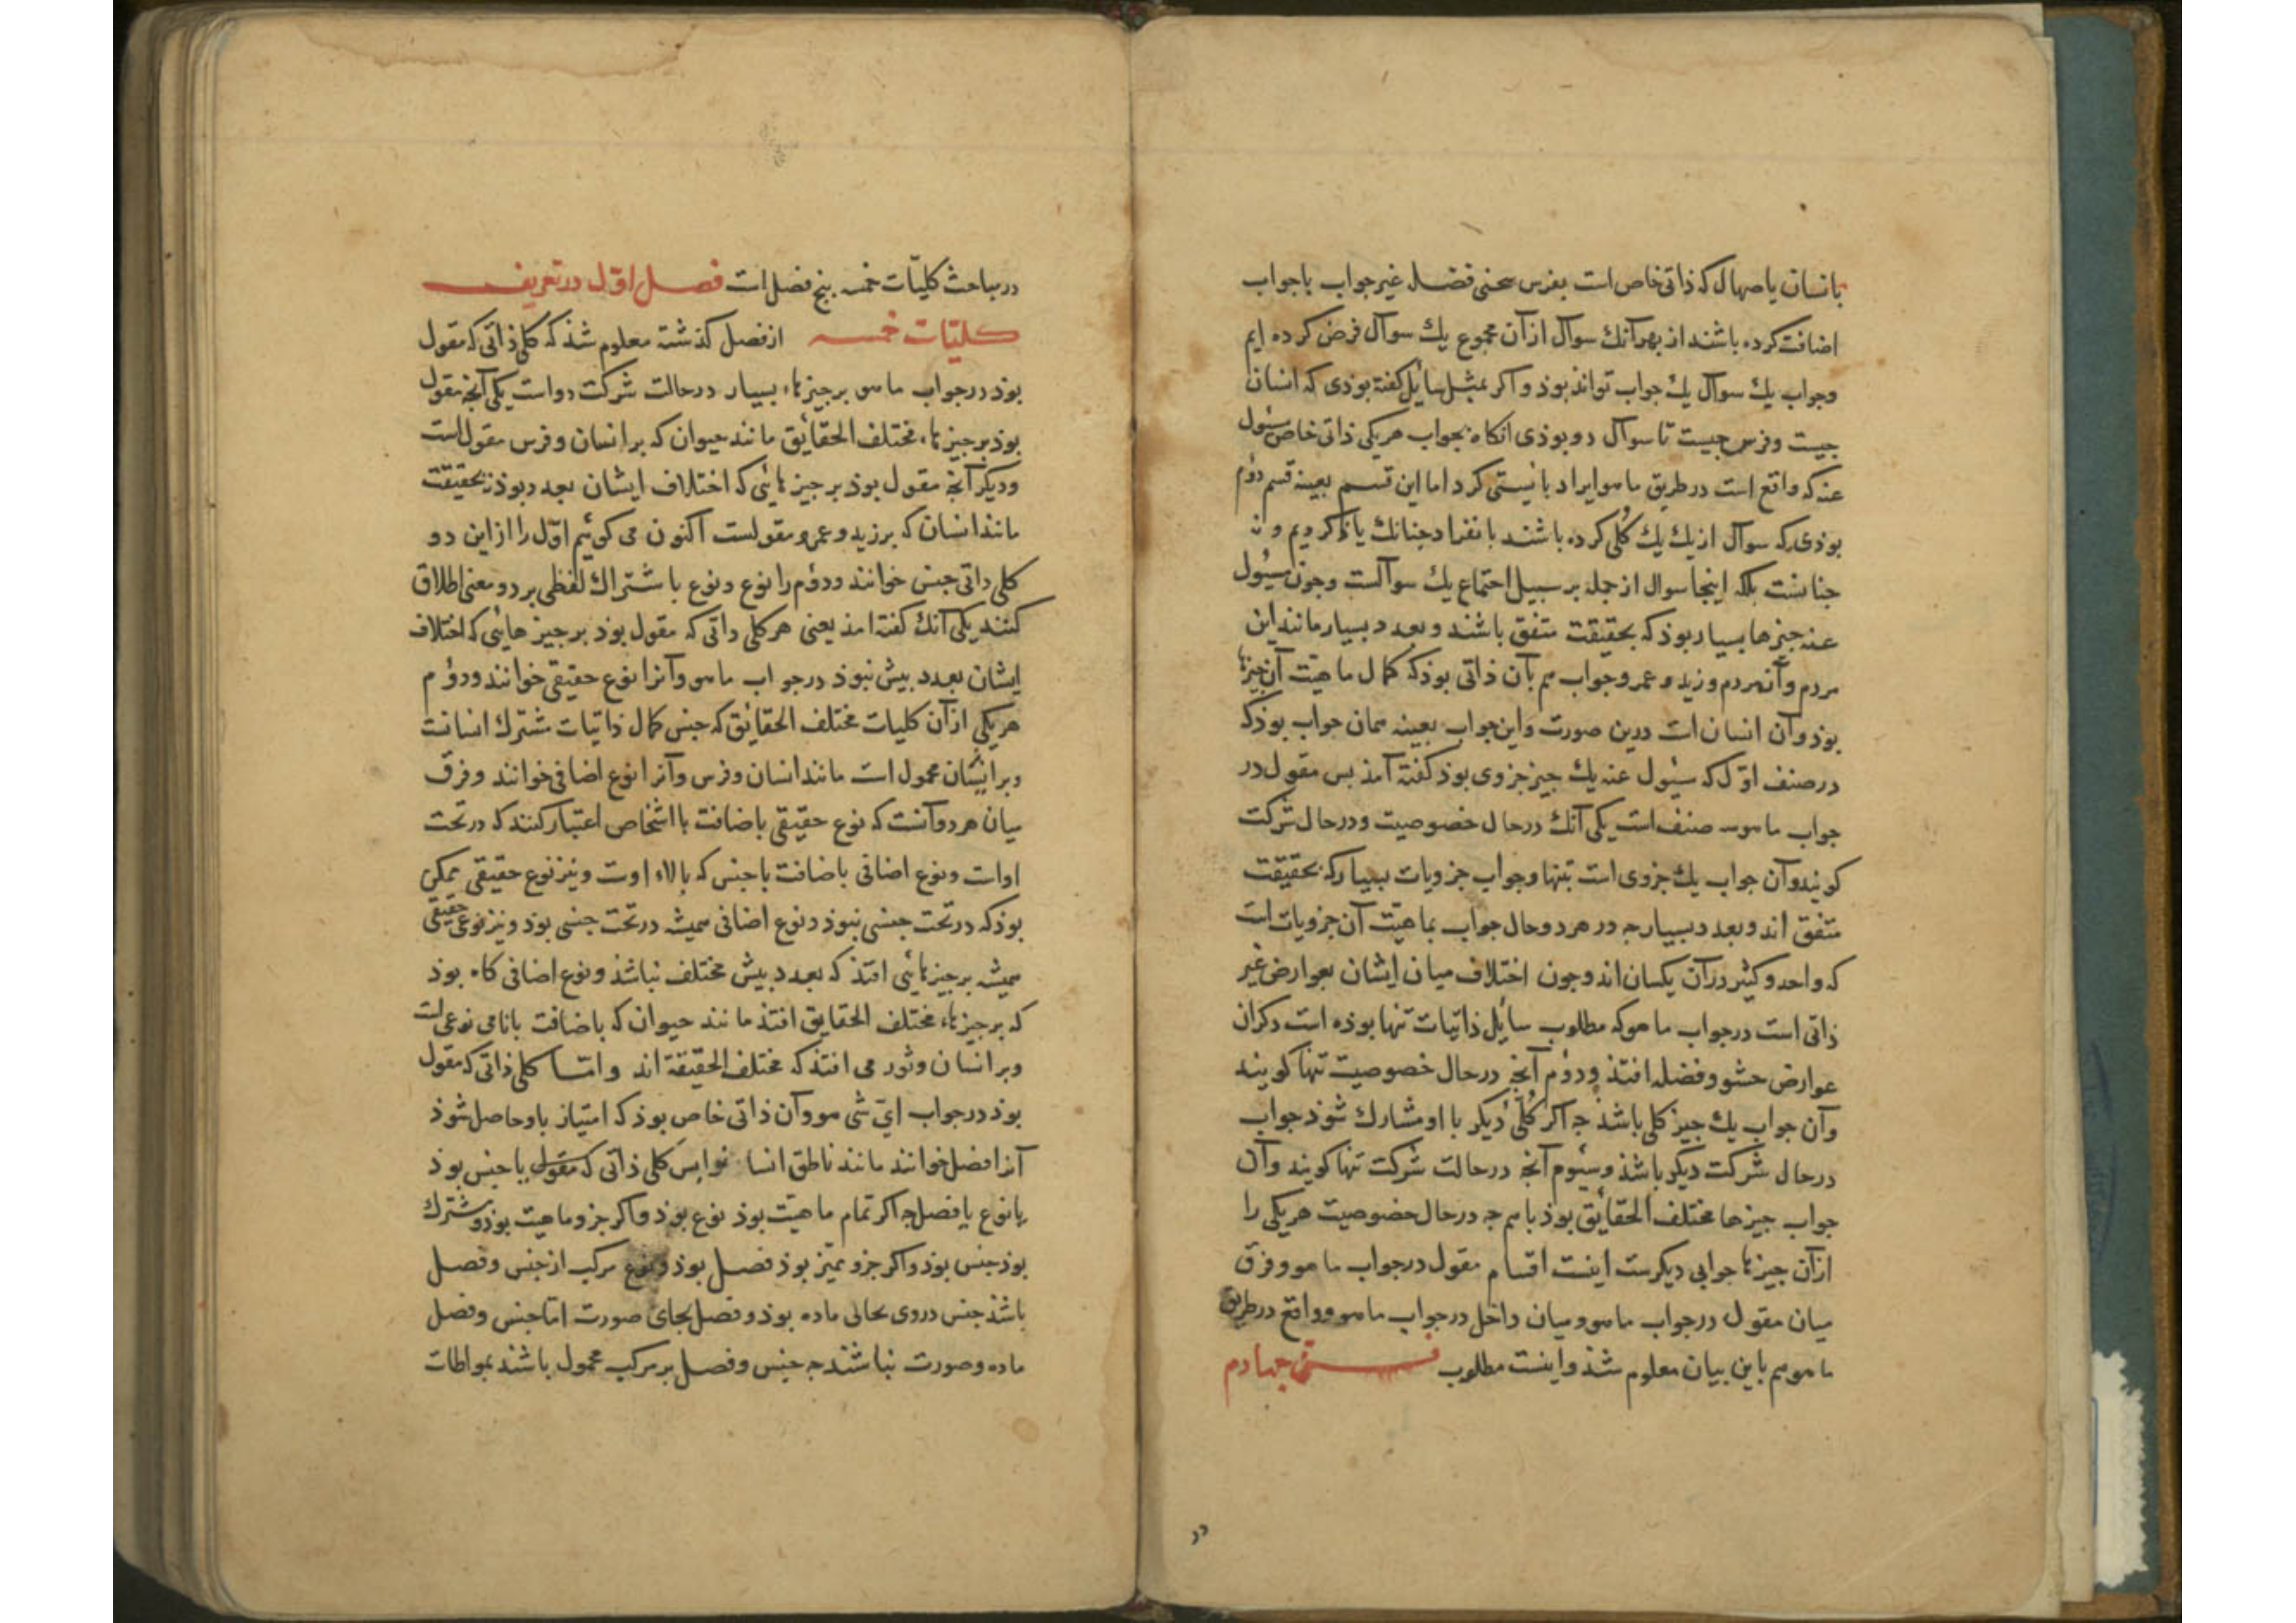 بانسان یا صهال که ذاتی خاص است بفرس سخنی فضل غیر جواب باجواب
اضافت کرده باشند از بهر آنک سوآل از آن مجموع یك سوآل فرض کرده ایم
وجواب یك سوآل یك جواب تواند بوذ و اکر بمثل سایل کفته بوذی که انسان
جیست وفرس جیست تا سوآل دو بوذی انکاه بجواب هر یکی ذاتی خاص مسئول
عنه که واقع است در طریق ماهو ایراد بایستی کرد اما این قسم بعینه قسم دوم
بوذی که سوآل از یك یك کلی کرده باشند بانفراد جنانك یاذ کردیم و نه
جنانست بلکه اینجا سوال از جمله بر سبیل اجتماع یك سوآلست وجون مسئول
عنه جیزها بسیار بوذ که بحقیقت متفق باشند و بعدد بسیار مانند این
مردم و آن مردم و زید و عمرو جواب هم بآن ذاتی بوذ که کمال ماهیت آن جیزها
بوذ و آن انسان است درین صورت و این جواب بعینه همان جواب بوذ که
در صنف اوّل که مسئول عنه یك جیز جزوی بوذ کفته آمذ بس مقول در
جواب ماهو سه صنف است یکی آنك در حال خصوصیت و در حال شرکت
کویند و آن جواب یك جزوی است بتنها وجواب جزویات بسیار که بحقیقت
متفق اند و بعدد بسیار جه در هر دو حال جواب بماهیت آن جزویات است
که واحد و کثیر در آن یکسان اند وجون اختلاف میان ایشان بعوارض غیر
ذاتی است در جواب ماهو که مطلوب سایل ذاتیات تنها بوذه است ذکر آن
عوارض حشو و فضله افتذ و دوم آنجه در حال خصوصیت تنها کویند
و آن جواب یك جیز کلی باشذ جه اکر کلی دیکر با او مشارك شوذ جواب
در حال شرکت دیکر باشذ و سیوم آنجه در حالت شرکت تنها کویند و آن
جواب جیزها مختلف الحقایق بوذ باهم جه در حال خصوصیت هر یکی را
از آن جیزها جوابی دیکرست اینست اقسام مقول در جواب ماهو و فرق
میان مقول در جواب ماهو و میان داخل در جواب ماهو و واقع در طریق
ماهو هم باین بیان معلوم شذ و اینست مطلوب فن جهارم
در
در مباحث کلیّات خمسه بنج فصل است فصل اوّل در تعریف
کلیّات خمسه از فصل کذشته معلوم شذ که کلی ذاتی که مقول
بوذ در جواب ماهو بر جیزهاء بسیار در حالت شرکت دو است یکی آنجه مقول
بوذ بر جیزهاء مختلف الحقایق مانند حیوان که بر انسان و فرس مقول است
و دیکر آنجه مقول بوذ بر جیزهائی که اختلاف ایشان بعدد بوذ نه بحقیقت
مانند انسان که بر زید و عمرو مقولست اکنون می کوئیم اوّل را از این دو
کلی ذاتی جنس خوانند و دوم را نوع و نوع باشتراك لفظی بر دو معنی اطلاق
کنند یکی آنك کفته امذ یعنی هر کلی ذاتی که مقول بوذ بر جیزهائی که اختلاف
ایشان بعدد بیش نبوذ در جواب ماهو و آنرا نوع حقیقی خوانند و دوم
هر یکی از آن کلیات مختلف الحقایق که جنس کمال ذاتیات مشترك انسانست
و بر ایشان محمول است مانند انسان و فرس و آنرا نوع اضافی خوانند و فرق
میان هر دو آنست که نوع حقیقی باضافت با اشخاص اعتبار کنند که در تحت
اوات و نوع اضافی باضافت باجنس که بالاء اوست و نیز نوع حقیقی ممکن
بوذ که در تحت جنسی نبوذ و نوع اضافی همیشه در تحت جنسی بود و نیز نوع حقیقی
همیشه بر جیزهائی افتذ که بعدد بیش مختلف نباشذ و نوع اضافی کاه بوذ
که بر جیزهاء مختلف الحقایق افتذ مانند حیوان که باضافت بانامی نوعی است
و بر انسان و ثور می افتذ که مختلف الحقیقة اند و امّا کلی ذاتی که مقول
بوذ در جواب ایّ شی هو و آن ذاتی خاص بوذ که امتیاز باو حاصل شوذ
آنرا فصل خوانند مانند ناطق انسان را بس کلی ذاتی که مقول یا جنس بوذ
یا نوع یا فصل جه اکر تمام ماهیت بوذ نوع بوذ و اکر جزو ماهیت بوذ و مشترك
بوذ جنس بوذ و اکر جزو ممیّز بوذ فصل بوذ و نوع مرکب از جنس و فصل
باشذ جنس در وی بجای ماده بوذ و فصل بجای صورت امّا جنس و فصل
ماده و صورت نباشند جه جنس و فصل بر مرکب محمول باشند بمواطات